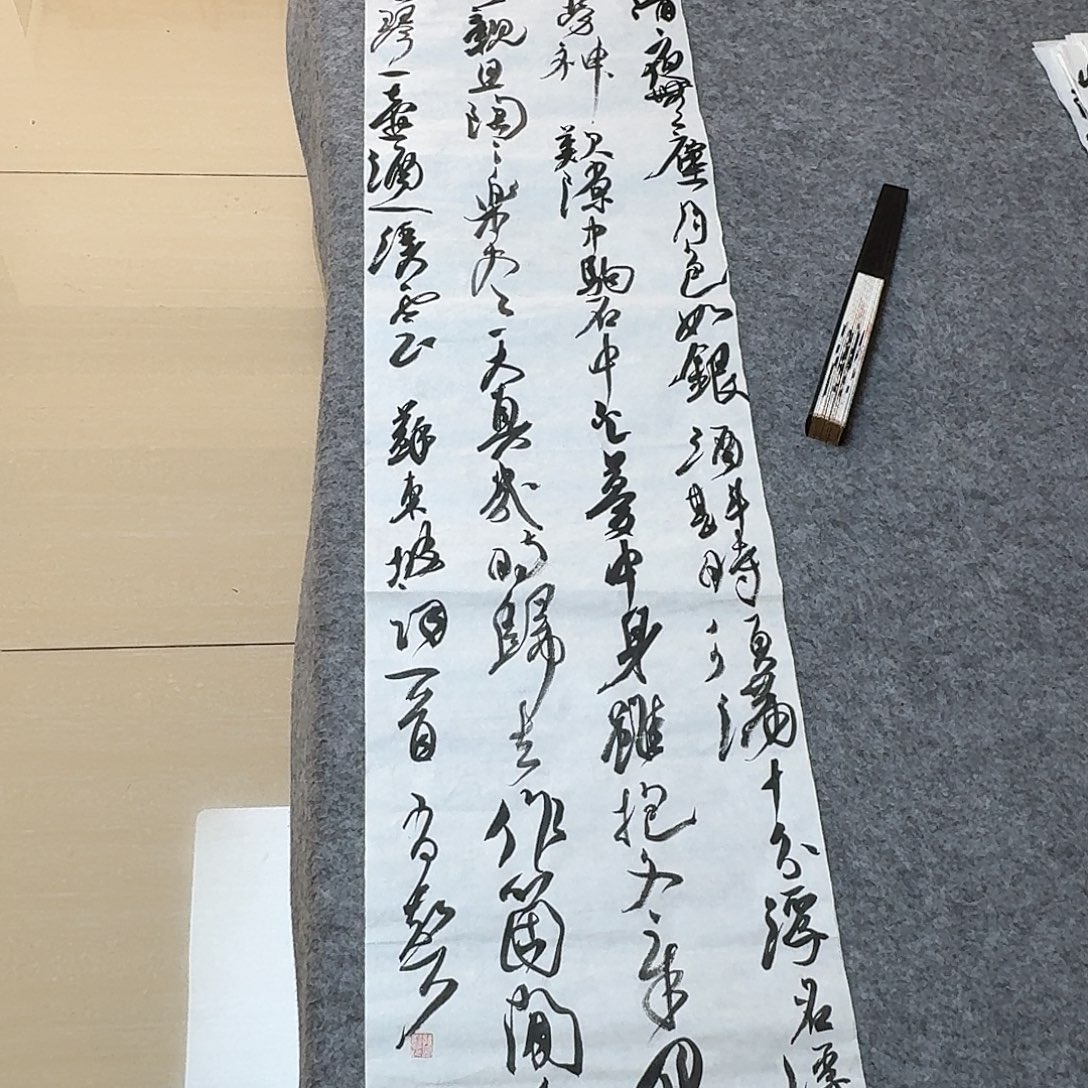 清夜無塵月色如銀酒斟時須滿十分浮名浮
勞神歎隙中駒石中火夢中身雖抱文章
親且陶陶樂盡天真幾時歸去作箇閒
琴一壺酒一溪雲 蘇東坡詞一首